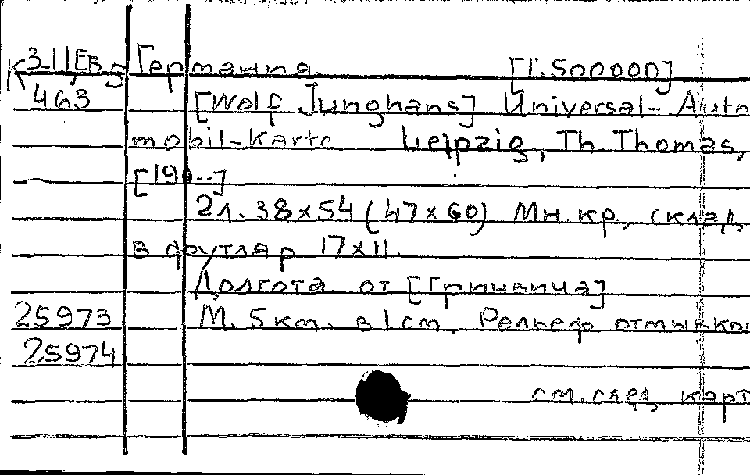 К 3-11,ЕВ,5 Германия [1:500000]
463 [Wolf Junghans] Universal-Auto
mobil-Karte Leipzig, Th. Thomas,
[19...]
2л. 38x54 (47x60) Мн. кр., склад,
в футляр 17x11.
Долгота от [Гринвича]
25973 М. 5 km. в 1 cm. Рельеф отмывкой
25974
см. след. карт